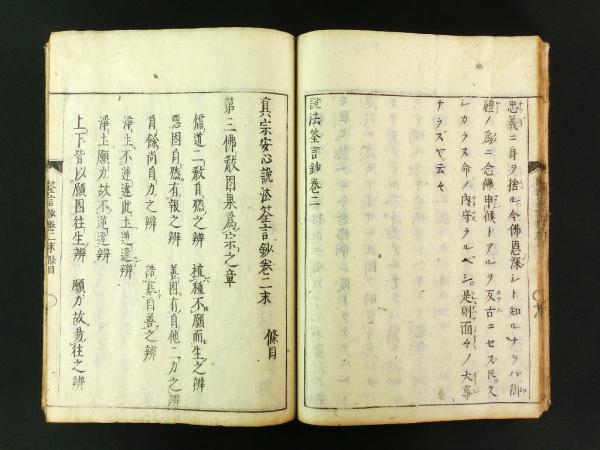 忠義ニ身ヲ捨ル今佛恩深シト知ルナラバ御
禮ノ爲ニ念佛申候トアルヲ反古ニセズ民久
シカラス命ノ内守ラルベシ是則面々ノ大事
ナラズヤ云々
說法筌言鈔卷二
眞宗安心說法筌言鈔卷二末
條目
第三佛敎因果爲宗之章
儒道二敎自然之辨
植種不願而生之辨
惡因自然有報之辨
善因有自他二力之辨
自餘尚自力之辨
自善之辨
淨土不逆違此土逆違辨
淨土願力故不逆違辨
上下皆以願因往生辨
願力故易往之辨
筌言鈔卷二末條目